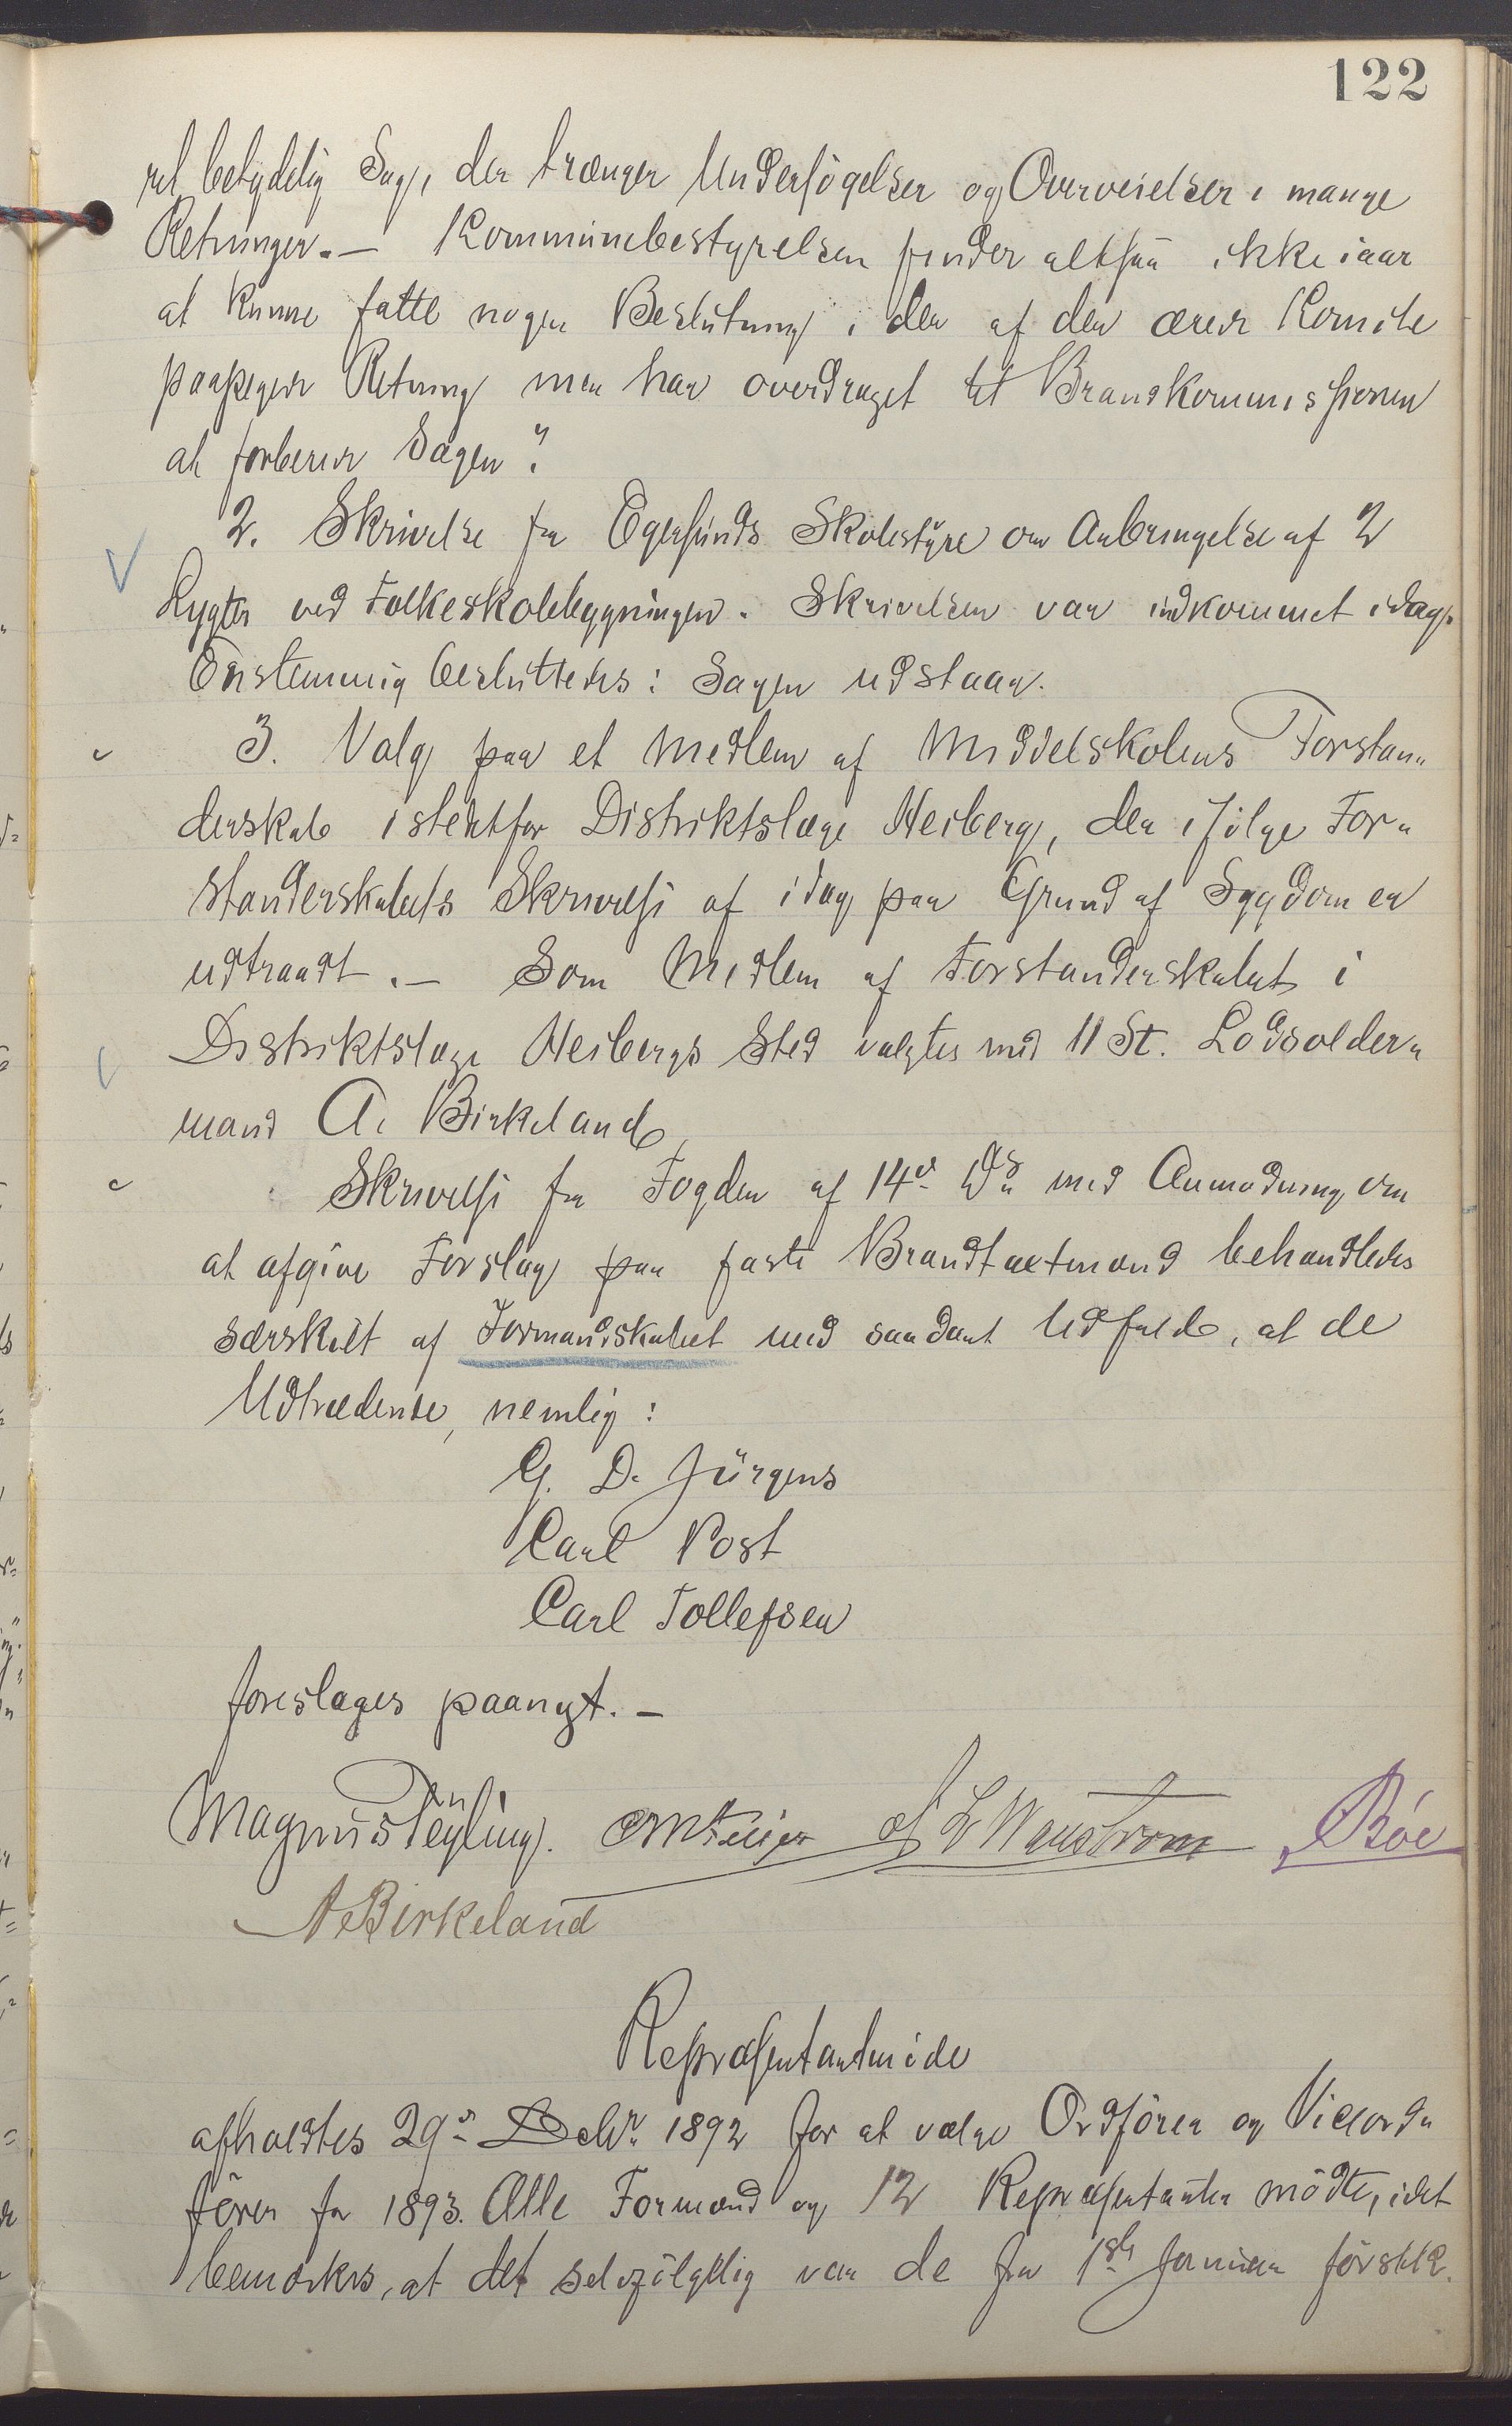 122
betydelig Sag, der trænger Undersögelser og Overveielser i mange
Retninger. — Kommunebestyrelsen finder altsaa ikke iaar
at kunne fatte nogen Beslutning i den af den ærede Komite
paapegede Retning men har overdraget til Brandkommissionen
at forberede Sagen".
2. Skrivelse fra Egersunds Skolestyre om Anbringelse af 2
Lygter ved Folkeskolebygningen. Skrivelsen var indkommet idag.
Enstemmig besluttedes: Sagen udstaar.
3. Valg paa et Medlem af Middelskolens Forstan-
derskab istedetfor Distriktslæge Heiberg, der ifölge For-
standerskabets Skrivelse af idag paa Grund af Sygdom er
udtraadt. — Som Medlem af Forstanderskabet i
Distriktslæge Heibergs Sted valgtes med 11 St. Lodsolder-
mand A. Birkeland
Skrivelse fra Fogden af 14de ds. med Anmodning om
at afgive Forslag paa faste Brandtaxtmænd behandledes
særskilt af Formandskabet med saadant Udfald, at de
Udtrædende, nemlig:
G. D. Jürgens
Carl Post
Carl Tollefsen
foreslages paanyt. —
Magnus Feyling. L Wanstrom Böe
A Birkeland
Repræsentantmöde
afholdtes 29de Decbr. 1892 for at vælge Ordförer og Viceord-
förer for 1893. Alle Formænd og 12 Repræsentanter mödte, idet
bemærkes, at det selvfölgelig var de fra 1ste Januar förstk.